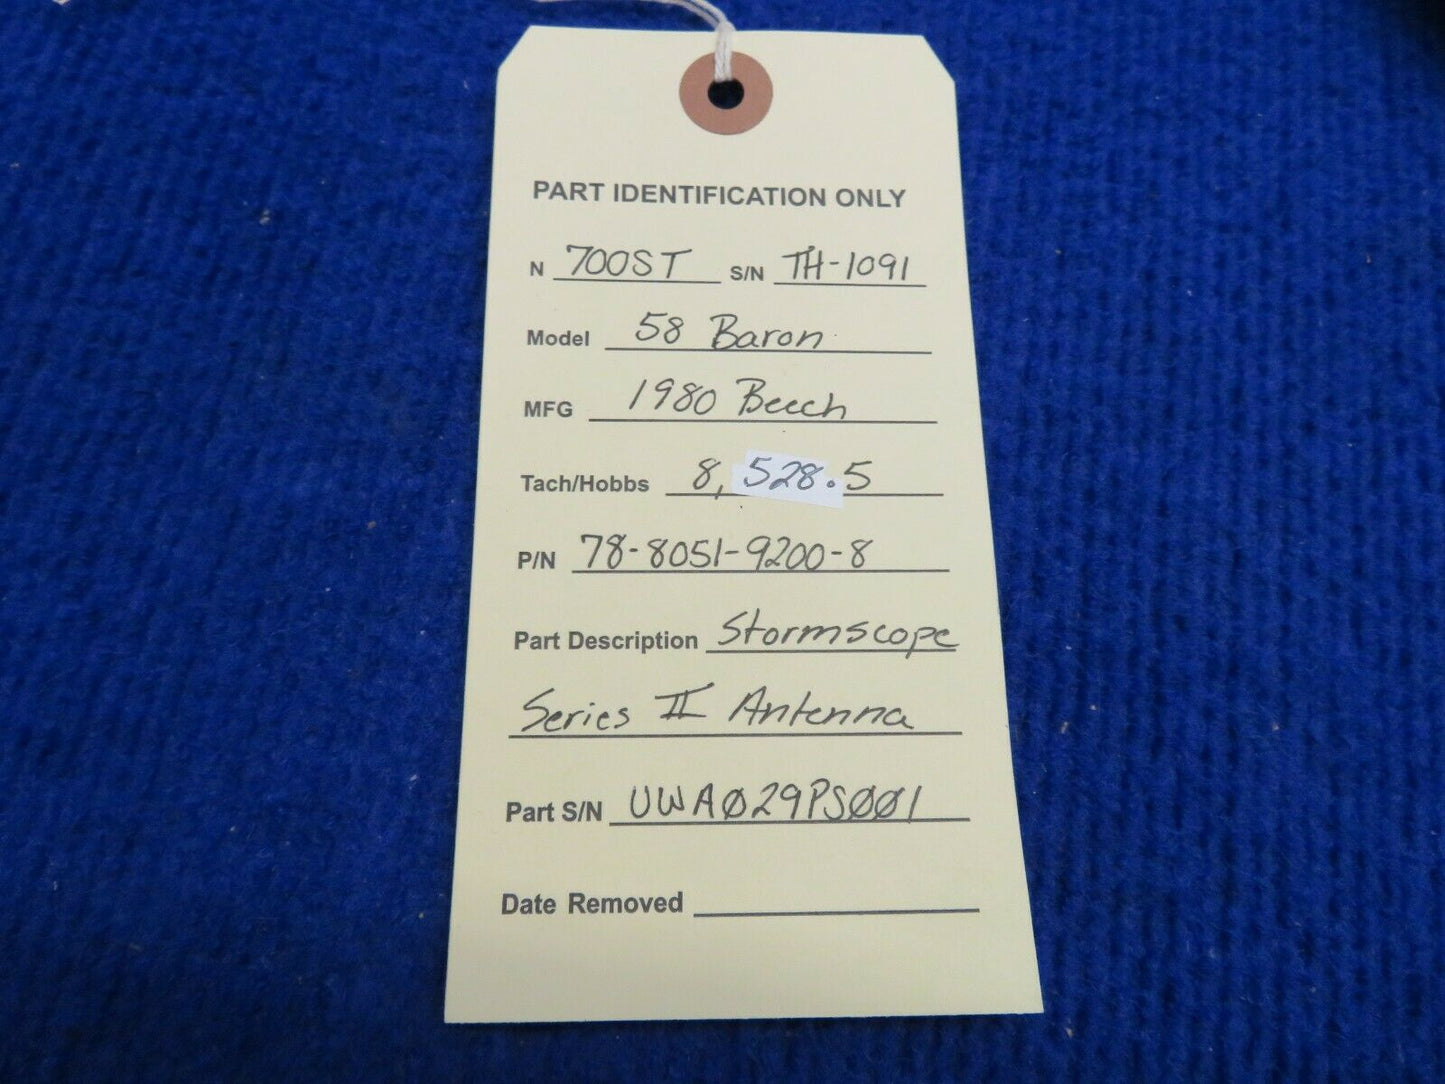 PART IDENTIFICATION ONLY
N 700ST S/N TH-1091
Model 58 Baron
MFG 1980 Beech
Tach/Hobbs 8,528.5
P/N 78-8051-9200-8
Part Description Stormscope
Series II Antenna
Part S/N UWAØ29PSØØ1
Date Removed